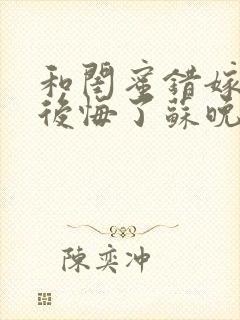 和閨蜜錯嫁
後悔了蘇晚
陳奕沖